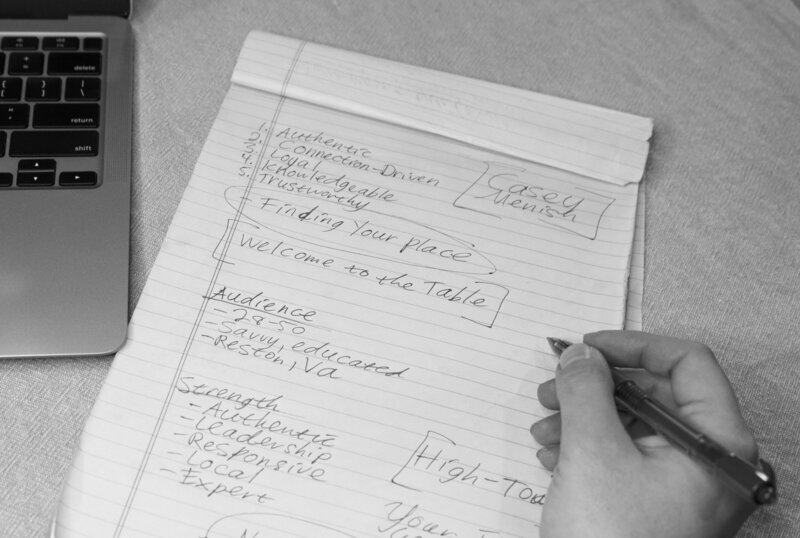 delete
return
shift
1. Authentic
2. Connection-Driven
3. Loyal
4. Knowledgeable
5. Trustworthy
Casey
Menish
- Finding Your place
Welcome to the Table
Audience
- 29-50
- Savvy, educated
- Reston, Va
Strength
- Authentic
- Leadership
- Responsive
- Local
- Expert
High-Tou
Your